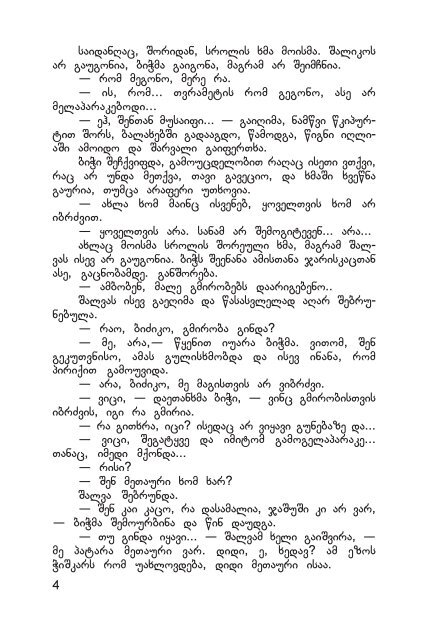 საიდანღაც, შორიდან, სროლის ხმა მოისმა. შალიკოს
არ გაუგონია, ბიჭმა გაიგონა, მაგრამ არ შეიმჩნია.
— რომ მეგონო, მერე რა.
— ის, რომ... თვრამეტის რომ გეგონო, ასე არ
მელაპარაკებოდი...
— ეჰ, შენთან მუსაიფი... — გაიღიმა, ნამწვი წკიპურ-
ტით შორს, ბალახებში გადააგდო, წამოდგა, წიგნი იღლი-
აში ამოიდო და შარვალი გაიფერთხა.
ბიჭი შეჩქვიფდა, გამოუცდელობით რაღაც ისეთი ვთქვი,
რაც არ უნდა მეთქვა, თავი გავეციო, და ხმაში ხვეწნა
გაურია, თუმცა არაფერი უთხოვია.
— ახლა ხომ მაინც ისვენებ, ყოველთვის ხომ არ
იბრძვით.
— ყოველთვის არა. სანამ არ შემოგიტევენ... არა...
ახლაც მოისმა სროლის შორეული ხმა, მაგრამ შალ-
ვას ისევ არ გაუგონია. ბიჭს შეენანა ამისთანა ჯარისკაცთან
ასე, გაცნობამდე. განშორება.
— ამბობენ, მალე გმირობებს დაარიგებენო..
შალვას ისევ გაეღიმა და წასასვლელად აღარ შებრუ-
ნებულა.
— რაო, ბიძიკო, გმირობა გინდა?
— მე, არა,— წყენით იუარა ბიჭმა. ვითომ, შენ
გეკუთვნისო, ამას გულისხმობდა და ისევ ინანა, რომ
პირიქით გამოუვიდა.
— არა, ბიძიკო, მე მაგისთვის არ ვიბრძვი.
— ვიცი, — დაეთანხმა ბიჭი, — ვინც გმირობისთვის
იბრძვის, იგი რა გმირია.
— რა გითხრა, იცი? ისედაც არ ვიყავი გუნებაზე და...
— ვიცი, შეგატყვე და იმიტომ გამოგელაპარაკე...
თანაც, იმედი მქონდა...
— რისი?
— შენ მეთაური ხომ ხარ?
შალვა შებრუნდა.
— შენ კაი კაცო, რა დასამალია, ჯაშუში კი არ ვარ,
— ბიჭმა შემოურბინა და წინ დაუდგა.
— თუ გინდა იყავი... — შალვამ ხელი გაიშვირა, —
მე პატარა მეთაური ვარ. დიდი, ე, ხედავ? ამ ეზოს
ჭიშკარს რომ უახლოვდება, დიდი მეთაური ისაა.
4